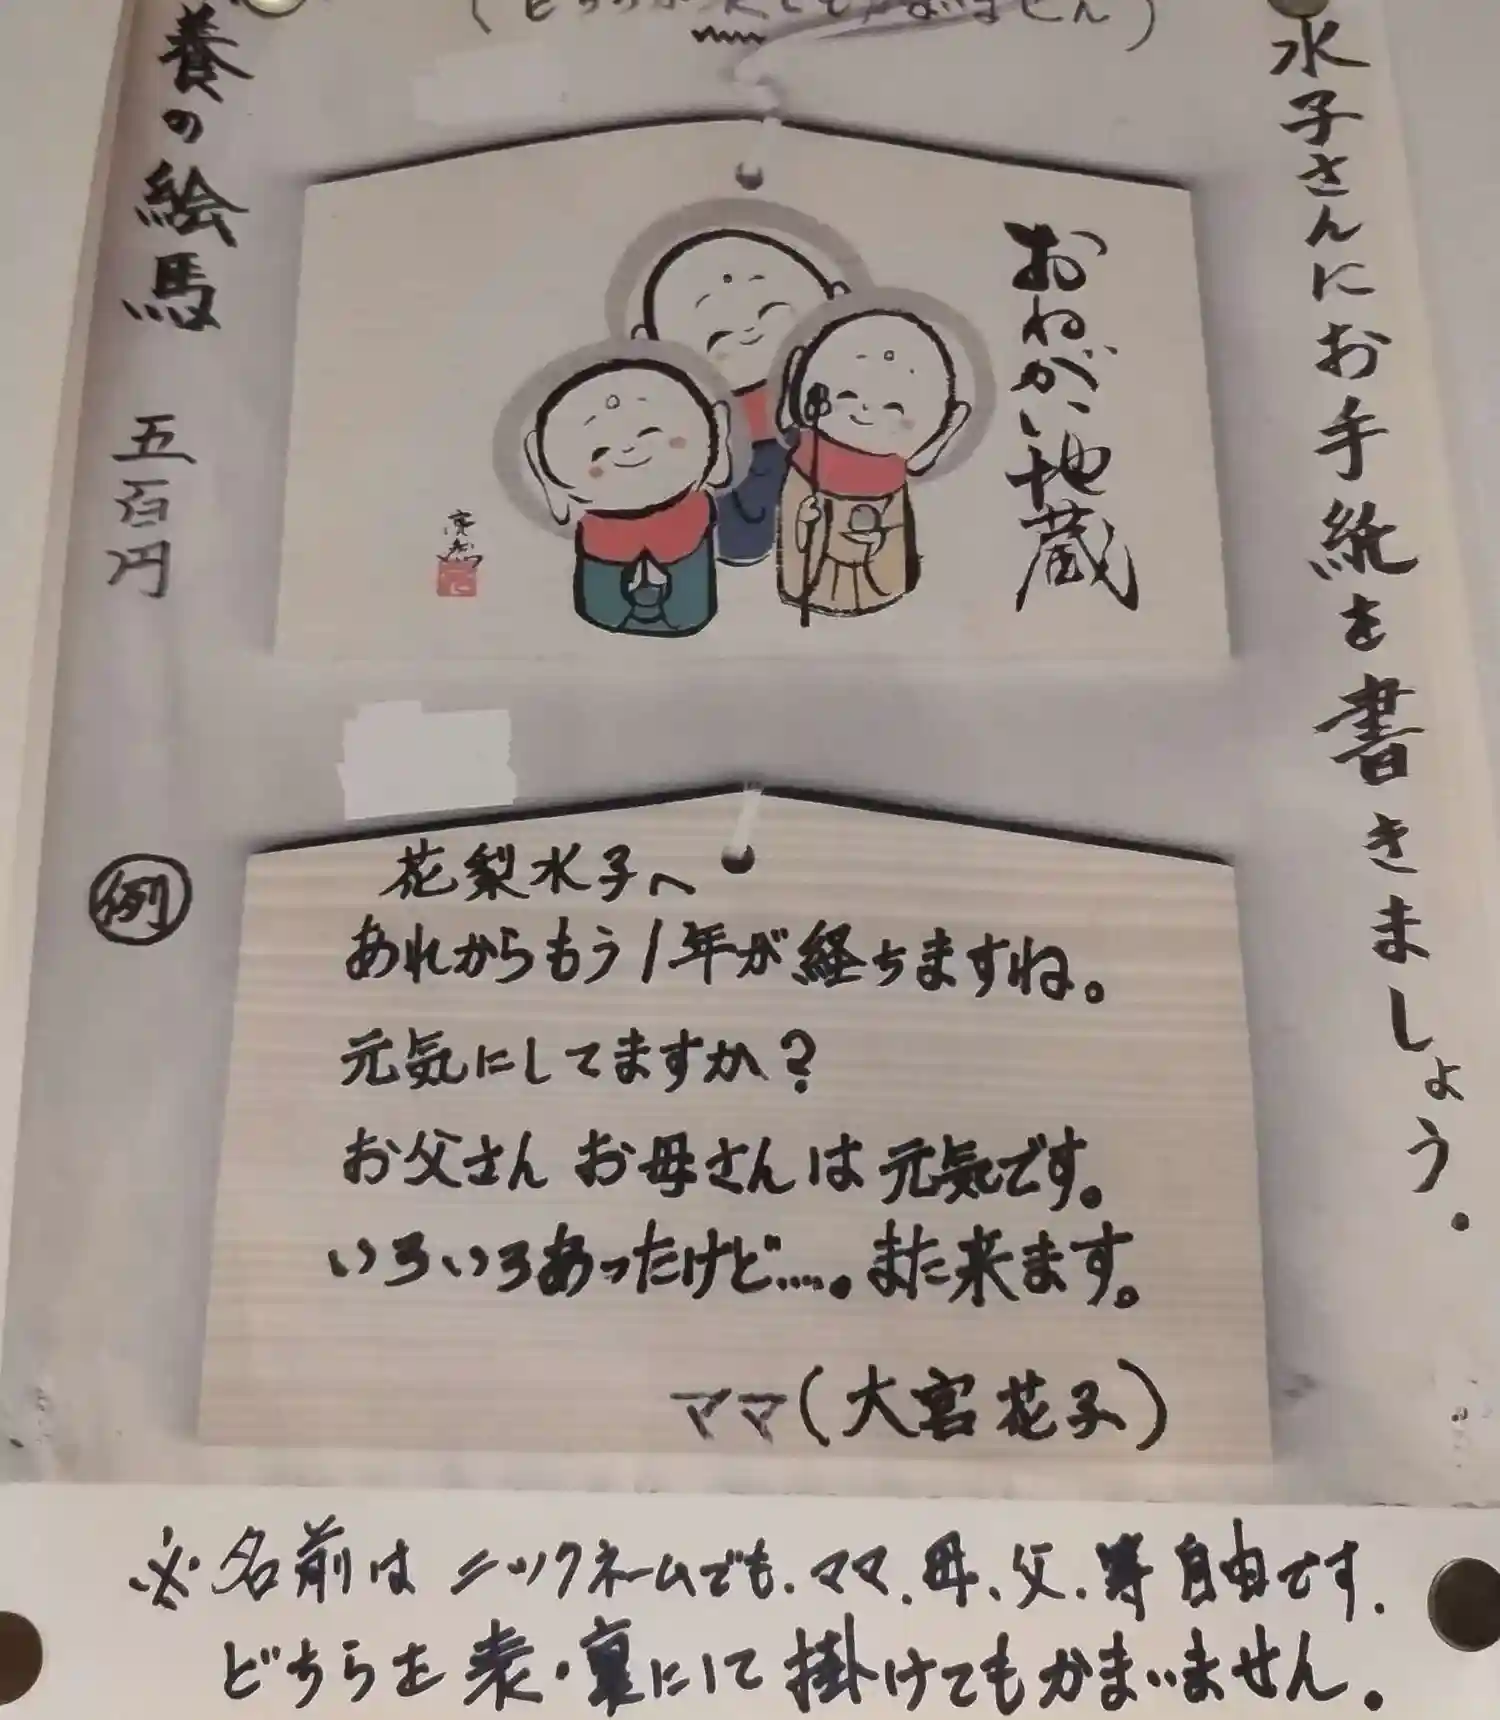 水子さんにお手紙を書きましょう。
養の絵馬 五百円
おねがい地蔵
例
花梨水子へ
あれからもう1年が経ちますね。
元気にしてますか?
お父さん お母さんは元気です。
いろいろあったけど....。また来ます。
ママ(大宮花子)
※名前はニックネームでも、ママ、母、父、等自由です。
どちらを表・裏にして掛けてもかまいません。